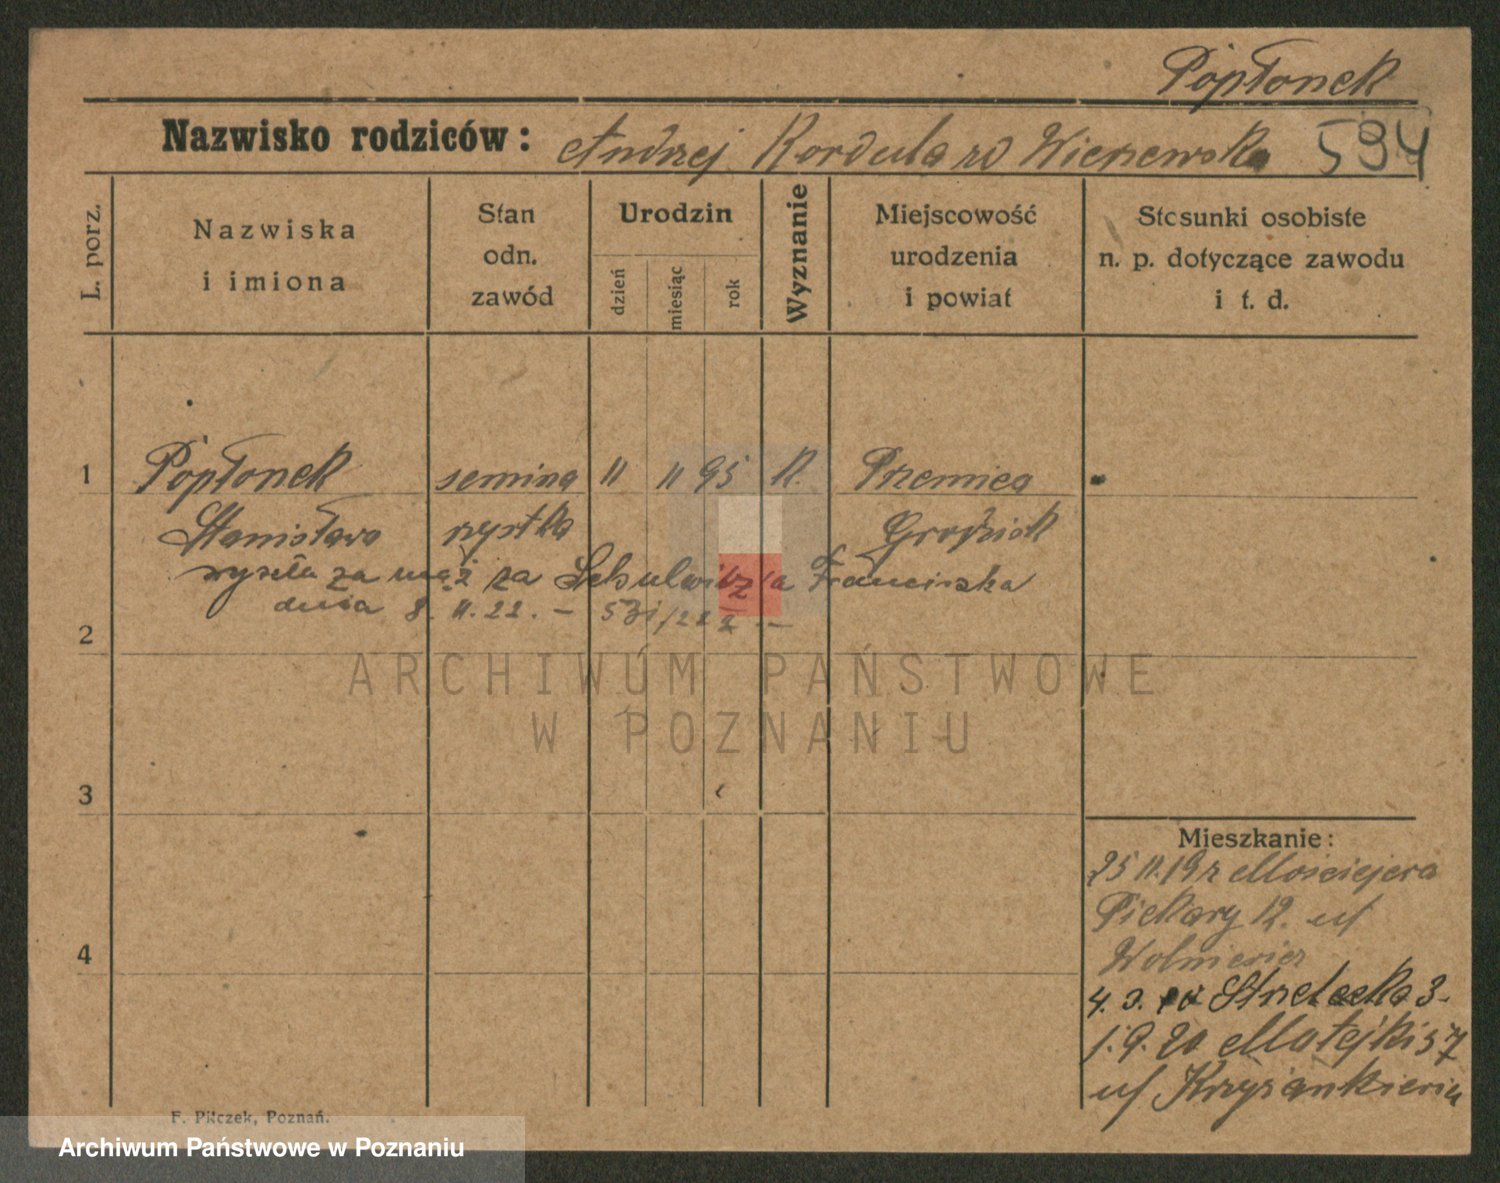 Popłonek
Nazwisko rodziców: Andrzej Kordula zd Wierzewska 594
L. porz.
Nazwiska
i imiona
Stan
odn.
zawód
Urodzin
dzień
miesiąc
rok
Wyznanie
Miejscowość
urodzenia
i powiat
Stosunki osobiste
n. p. dotyczące zawodu
i t. d.
1 Popłonek semina 11 11 95 K.
Stanisława rzystka Grodzisk
wyszła za mąż za Franciszka
dnia 8. 11. 22. –
2
ARCHIWUM PAŃSTWOWE
W POZNANIU
3
Mieszkanie:
25 11.19 z
Piekary 12. u/
4
Strzelecka 3.
1.9.20 Matejki 57
u/
F. Pilczek, Poznań.
Archiwum Państwowe w Poznaniu